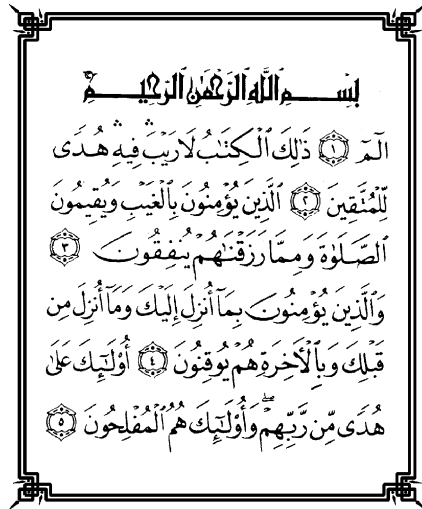 بِسْمِ ٱللَّهِ ٱلرَّحْمَٰنِ ٱلرَّحِيمِ
الٓمٓ ۝١ ذَٰلِكَ ٱلْكِتَٰبُ لَا رَيْبَ ۛ فِيهِ ۛ هُدًى
لِّلْمُتَّقِينَ ۝٢ ٱلَّذِينَ يُؤْمِنُونَ بِٱلْغَيْبِ وَيُقِيمُونَ
ٱلصَّلَوٰةَ وَمِمَّا رَزَقْنَٰهُمْ يُنفِقُونَ ۝٣
وَٱلَّذِينَ يُؤْمِنُونَ بِمَآ أُنزِلَ إِلَيْكَ وَمَآ أُنزِلَ مِن
قَبْلِكَ وَبِٱلْأَخِرَةِ هُمْ يُوقِنُونَ ۝٤ أُو۟لَٰٓئِكَ عَلَىٰ
هُدًى مِّن رَّبِّهِمْ ۖ وَأُو۟لَٰٓئِكَ هُمُ ٱلْمُفْلِحُونَ ۝٥